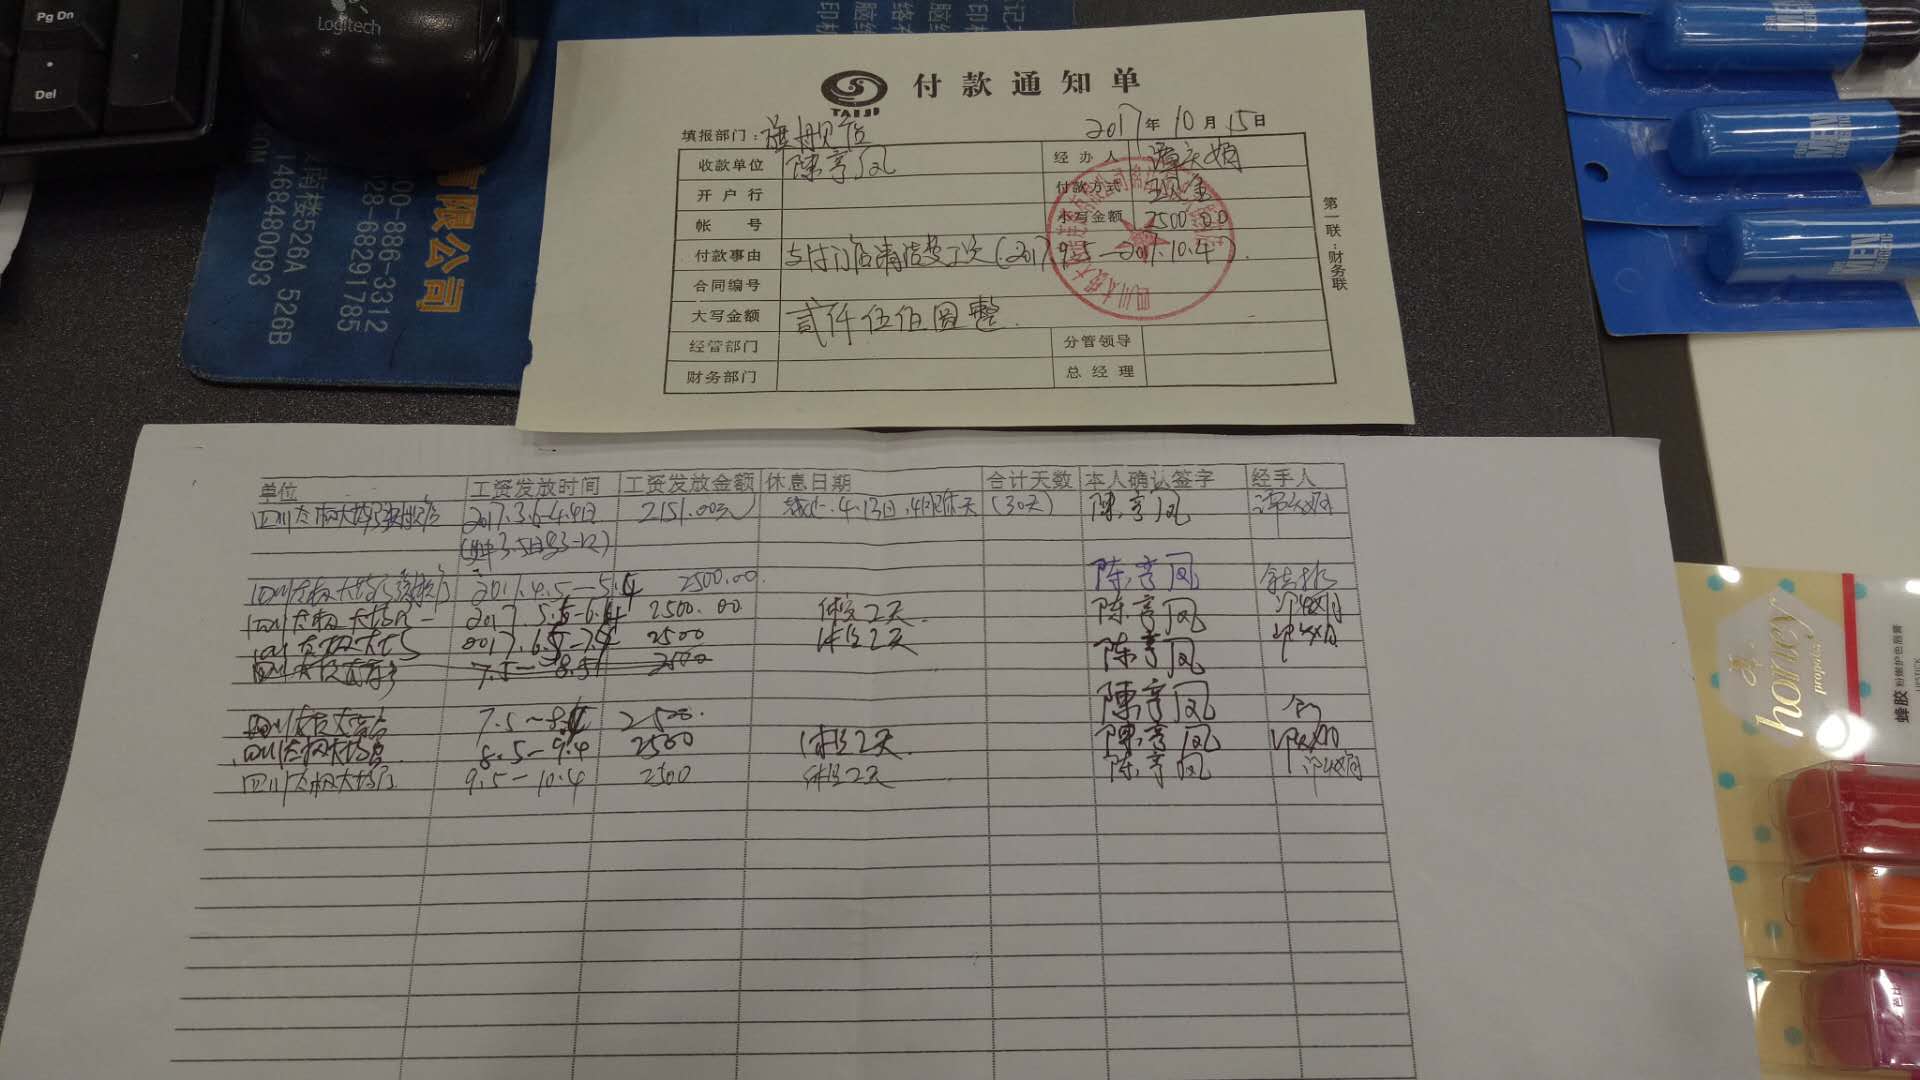 Pg Dn
Logitech
Del
有限公司
00-886-3312
028-68291785
南楼526A 526B
1468480093
TAIJI
付款通知单
填报部门：旗舰店
2017年10月15日
收款单位 陳享凤 经办人
开户行 付款方式 现金
帐号 小写金额 2500.00
付款事由 支付门店清洁费 (2017.9.5—2017.10.4).
合同编号
大写金额 贰仟伍佰圆整
经管部门 分管领导
财务部门 总经理
第一联：财务联
单位 工资发放时间 工资发放金额 休息日期 合计天数 本人确认签字 经手人
四川太极大药房旗舰店 2017.3.6-4.4日 2151.00元 (30天) 陳享凤
四川太极大药房旗舰店 2017.4.5-5.4 2500.00 陈享凤
四川太极大药房 2017.5.5-6.4 2500.00 休息2天 陈享凤
四川太极大药房 2017.6.5-7.4 2500 休息2天 陈享凤
7.5-8.5 2500
7.5-8.4 2500. 陳享凤
四川太极大药房 8.5-9.4 2500 休息2天 陳享凤
四川太极大药房 9.5-10.4 2500 休息2天 陈享凤
FOR MEN ENERGETIC
MEN
MEN
honey
propolis
蜂胶